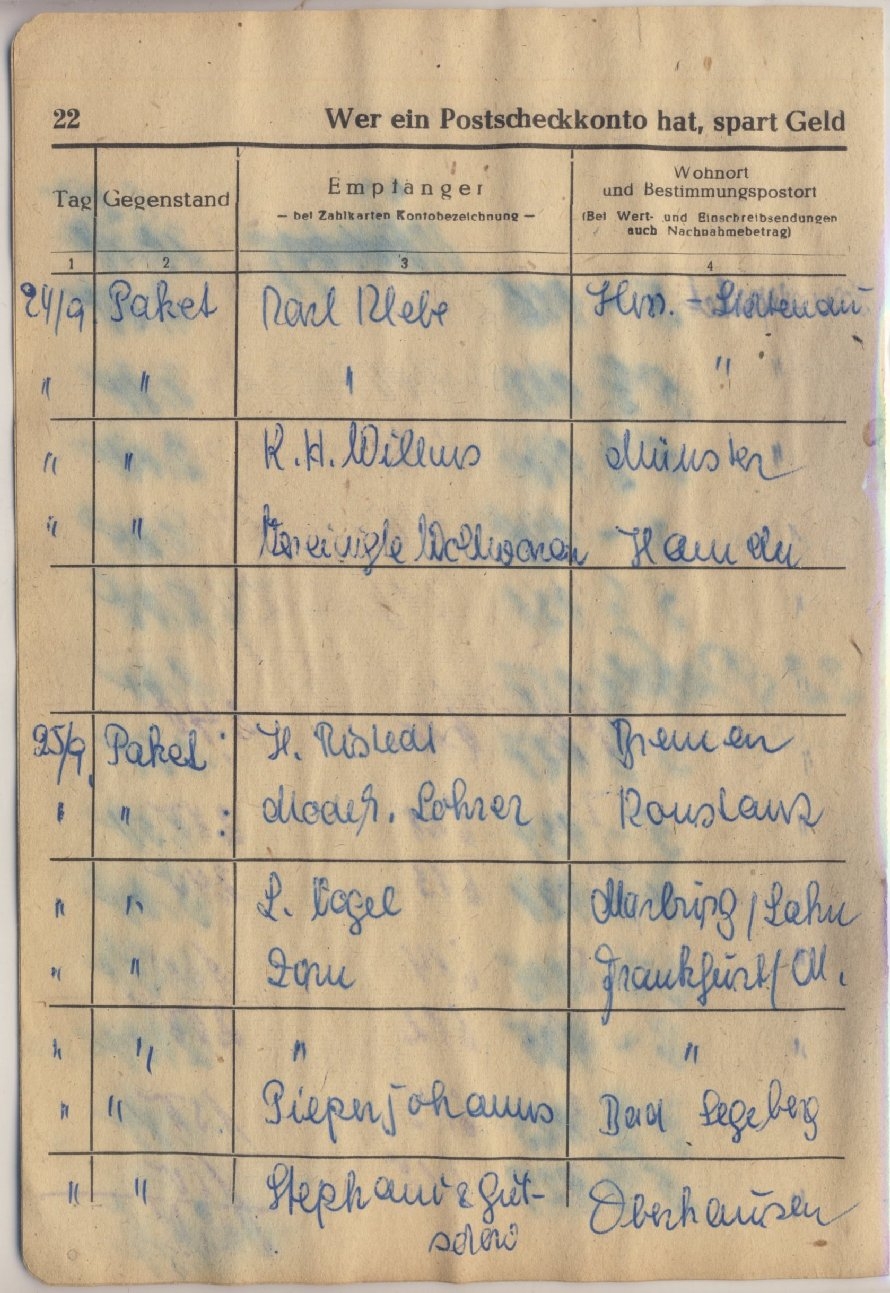 22 Wer ein Postscheckkonto hat, spart Geld
Tag Gegenstand Empfänger Wohnort
und Bestimmungspostort
— bei Zahlkarten Kontobezeichnung — (Bei Wert- und Einschreibsendungen
auch Nachnahmebetrag)
1 2 3 4
24/9. Paket Karl Klebe Hess. - Lichtenau
" " " "
" " K. H. Willms Münster
" " Vereinigte Wollwaren Hameln
25/9. Paket H. Ristedt Bremen
" " : Modeh. Lohrer Konstanz
" " L. Vogel Marburg / Lahn
" " Zorn Frankfurt / M.
" " " "
" " Pieperjohanns Bad Segeberg
" " Stephani & Gut- Oberhausen